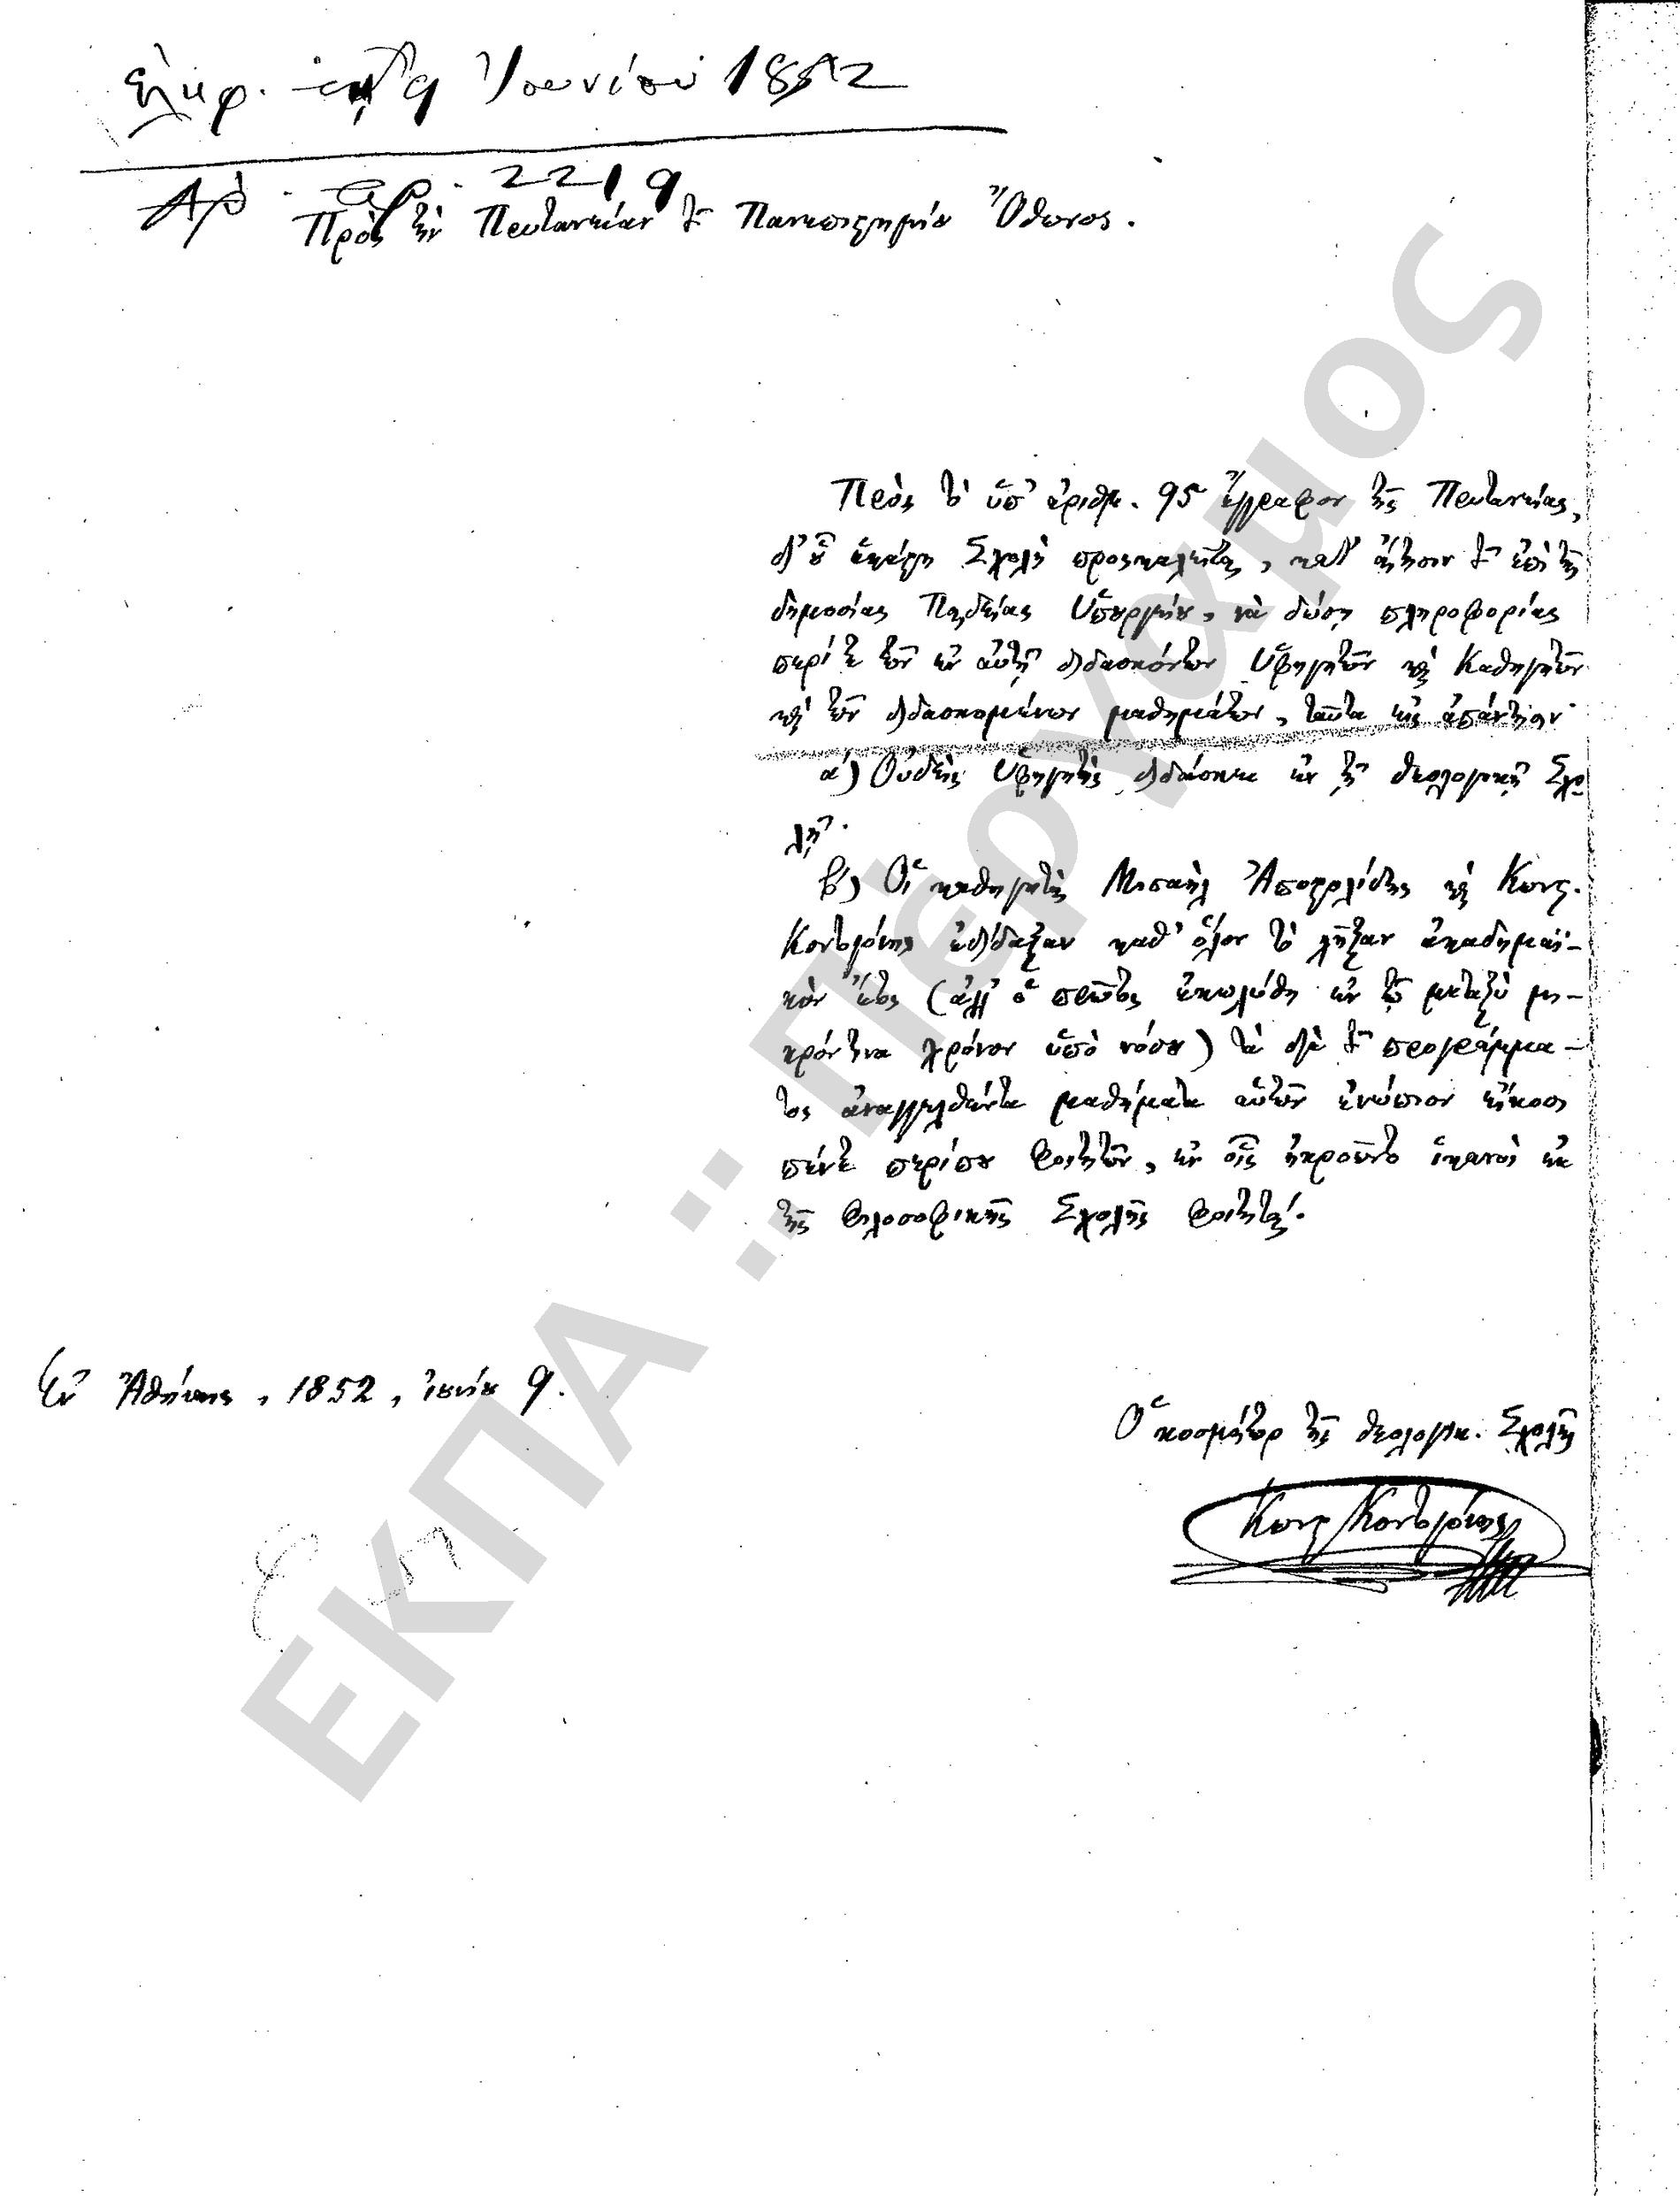 Ἐλήφ. τῇ 9 Ἰουνίου 1852
Ἀρ. πρ. 2219
Πρὸς τὴν Πρυτανείαν τοῦ Πανεπιστημίου Ὄθωνος.
Πρὸς τὸ ὑπ' ἀριθμ. 95 ἔγγραφον τῆς Πρυτανείας,
δι' οὗ ἑκάστη Σχολὴ προσκαλεῖται, κατ' αἴτησιν τοῦ ἐπὶ τῆς
δημοσίας Παιδείας Ὑπουργείου, νὰ δώσῃ πληροφορίας
περί τε τῶν ἐν αὐτῇ διδασκόντων Ὑφηγητῶν καὶ Καθηγητῶν
καὶ τῶν διδασκομένων μαθημάτων, ταῦτα εἰς ἀπάντησιν·
α) Οὐδεὶς Ὑφηγητὴς διδάσκει ἐν τῇ θεολογικῇ Σχο
λῇ.
β) Οἱ καθηγηταὶ Μισαὴλ Ἀποστολίδης καὶ Κωνστ.
Κοντογόνης ἐδίδαξαν καθ' ὅλον τὸ λῆξαν ἀκαδημαϊ-
κὸν ἔτος (ἀλλ' ὁ πρῶτος ἐκωλύθη ἐν τῷ μεταξὺ μι-
κρόν τινα χρόνον ὑπὸ νόσου) τὰ διὰ τοῦ προγράμμα-
τος ἀναγγελθέντα μαθήματα αὑτῶν ἐνώπιον εἴκοσι
πέντε περίπου φοιτητῶν, ἐν οἷς ἠκροῶντο ἱκανοὶ ἐκ
τῆς φιλοσοφικῆς Σχολῆς φοιτηταί.
Ἐν Ἀθήναις, 1852, ἰουνίου 9.
Ὁ κοσμήτωρ τῆς θεολογικ. Σχολῆς
Κωνστ. Κοντογόνης
ΕΚΠΑ :: Πέργαμος